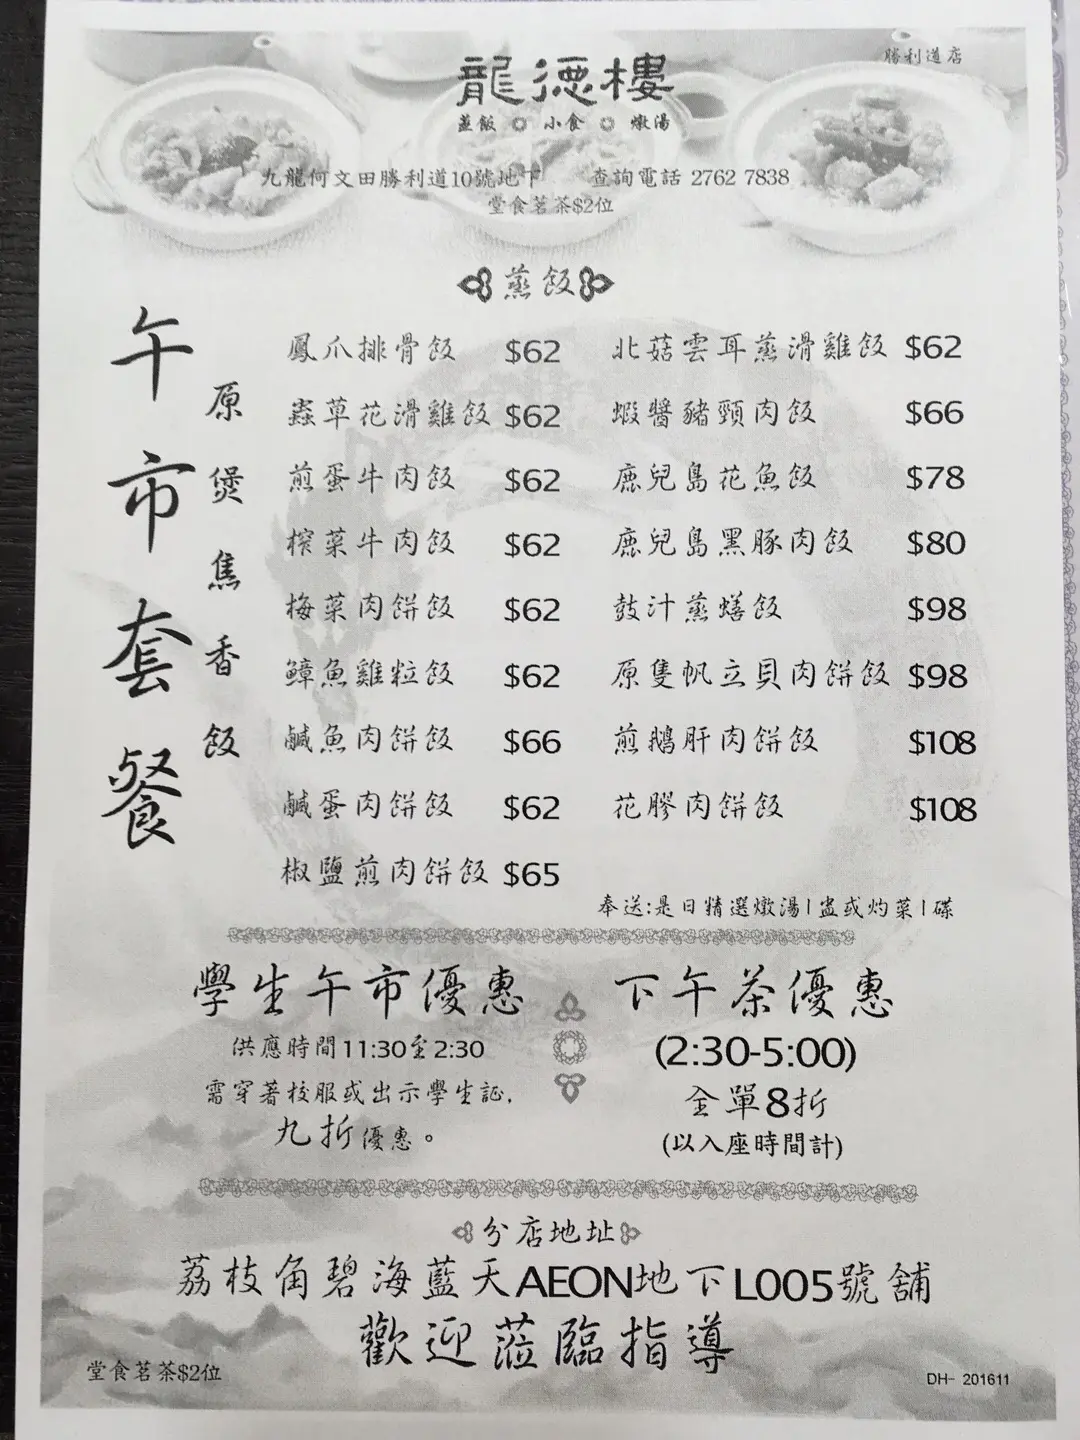 勝利道店
龍德樓
盅飯 小食 燉湯
九龍何文田勝利道10號地下 查詢電話 2762 7838
堂食茗茶$2位
蒸飯
午市套餐
原煲焦香飯
鳳爪排骨飯 $62
蟲草花滑雞飯 $62
煎蛋牛肉飯 $62
榨菜牛肉飯 $62
梅菜肉餅飯 $62
鱆魚雞粒飯 $62
鹹魚肉餅飯 $66
鹹蛋肉餅飯 $62
椒鹽煎肉餅飯 $65
北菇雲耳蒸滑雞飯 $62
蝦醬豬頸肉飯 $66
鹿兒島花魚飯 $78
鹿兒島黑豚肉飯 $80
鼓汁蒸蟮飯 $98
原隻帆立貝肉餅飯 $98
煎鵝肝肉餅飯 $108
花膠肉餅飯 $108
奉送:是日精選燉湯1盅或灼菜1碟
學生午市優惠
供應時間11:30至2:30
需穿著校服或出示學生証,
九折優惠。
下午茶優惠
(2:30-5:00)
全單8折
(以入座時間計)
分店地址
荔枝角碧海藍天AEON地下L005號舖
歡迎蒞臨指導
堂食茗茶$2位
DH- 201611